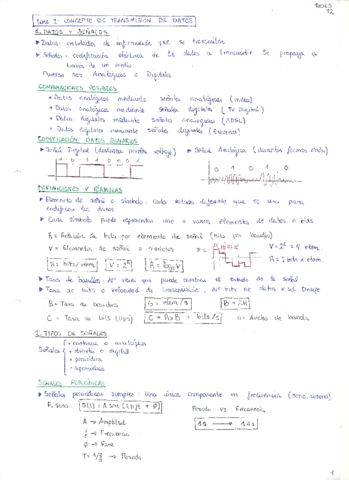 REDES
TEMA 2: CONCEPTO DE TRANSMISIÓN DE DATOS
1. DATOS Y SEÑALES
Datos: entidades de información que se transmiten
Señales: codificación eléctrica de los datos a transmitir. Se propaga a
través de un medio.
Pueden ser Analógicas o Digitales
COMBINACIONES POSIBLES
+ Datos analógicos mediante señales analógicas (radio)
+ Datos analógicos mediante señales digitales (TV Digital)
+ Datos digitales mediante señales analógicas (ADSL)
+ Datos digitales mediante señales digitales (Ethernet)
CODIFICACIÓN DATOS BINARIOS
Señal Digital (distintos niveles voltaje)
Señal Analógica (distintas formas onda)
DEFINICIONES Y FÓRMULAS
Elemento de señal o símbolo: cada estado diferente que se usa para
codificar los datos
Cada símbolo puede representar uno o varios elementos de datos o bits
R = Relación de bits por elemento de señal (bits por baudio)
V = Elementos de señal o símbolos
V = 2² = 4 elem.
R = 2 bits x elem.
R = bits/elem
V = 2ᴿ
R = log₂V
Tasa de baudios: Nº veces que puede cambiar el estado de la señal
B = Tasa de baudios
B = elem/s
C = Tasa de bits (bps)
C = R × B = bits/s
2. TIPOS DE SEÑALES
Señales
+ continua o analógica
+ discreta o digital
+ periódica
+ aperiódica
SEÑALES PERIÓDICAS
Señales periódicas simples: una única componente en frecuencia (seno, coseno)
A → Amplitud
f → Frecuencia
φ → Fase
→ Período
Período vs Frecuencia
1s → 1Hz
1